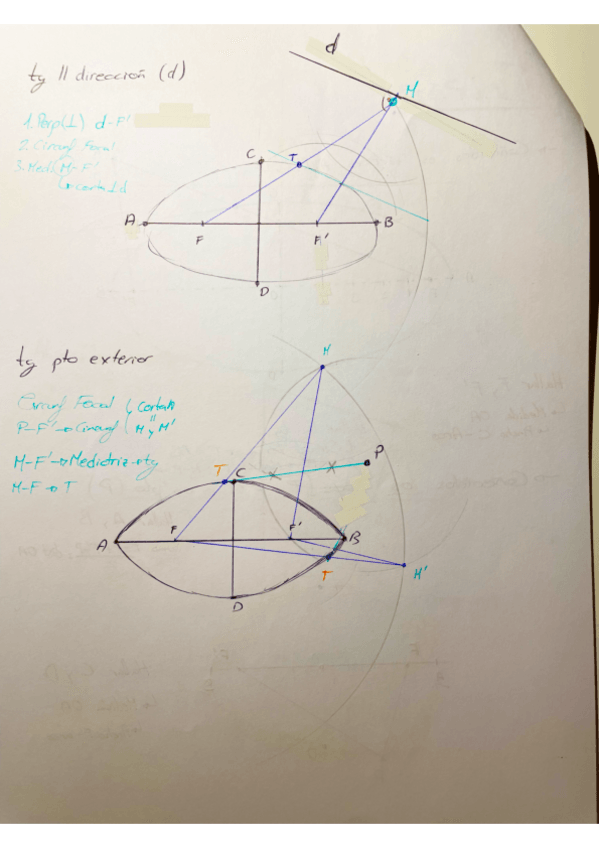 tg || dirección (d)
d
M
1. Perp(⊥) d-F'
2. Circunf Focal
3. Med M-F'
corta ⊥ d
C
T
A
B
F
F'
D
tg pto exterior
M
Circunf Focal
P-F' → Circunf
M y M'
P
M-F' → Mediatriz → tg
M-F → T
T
C
F
F'
A
B
T
M'
D